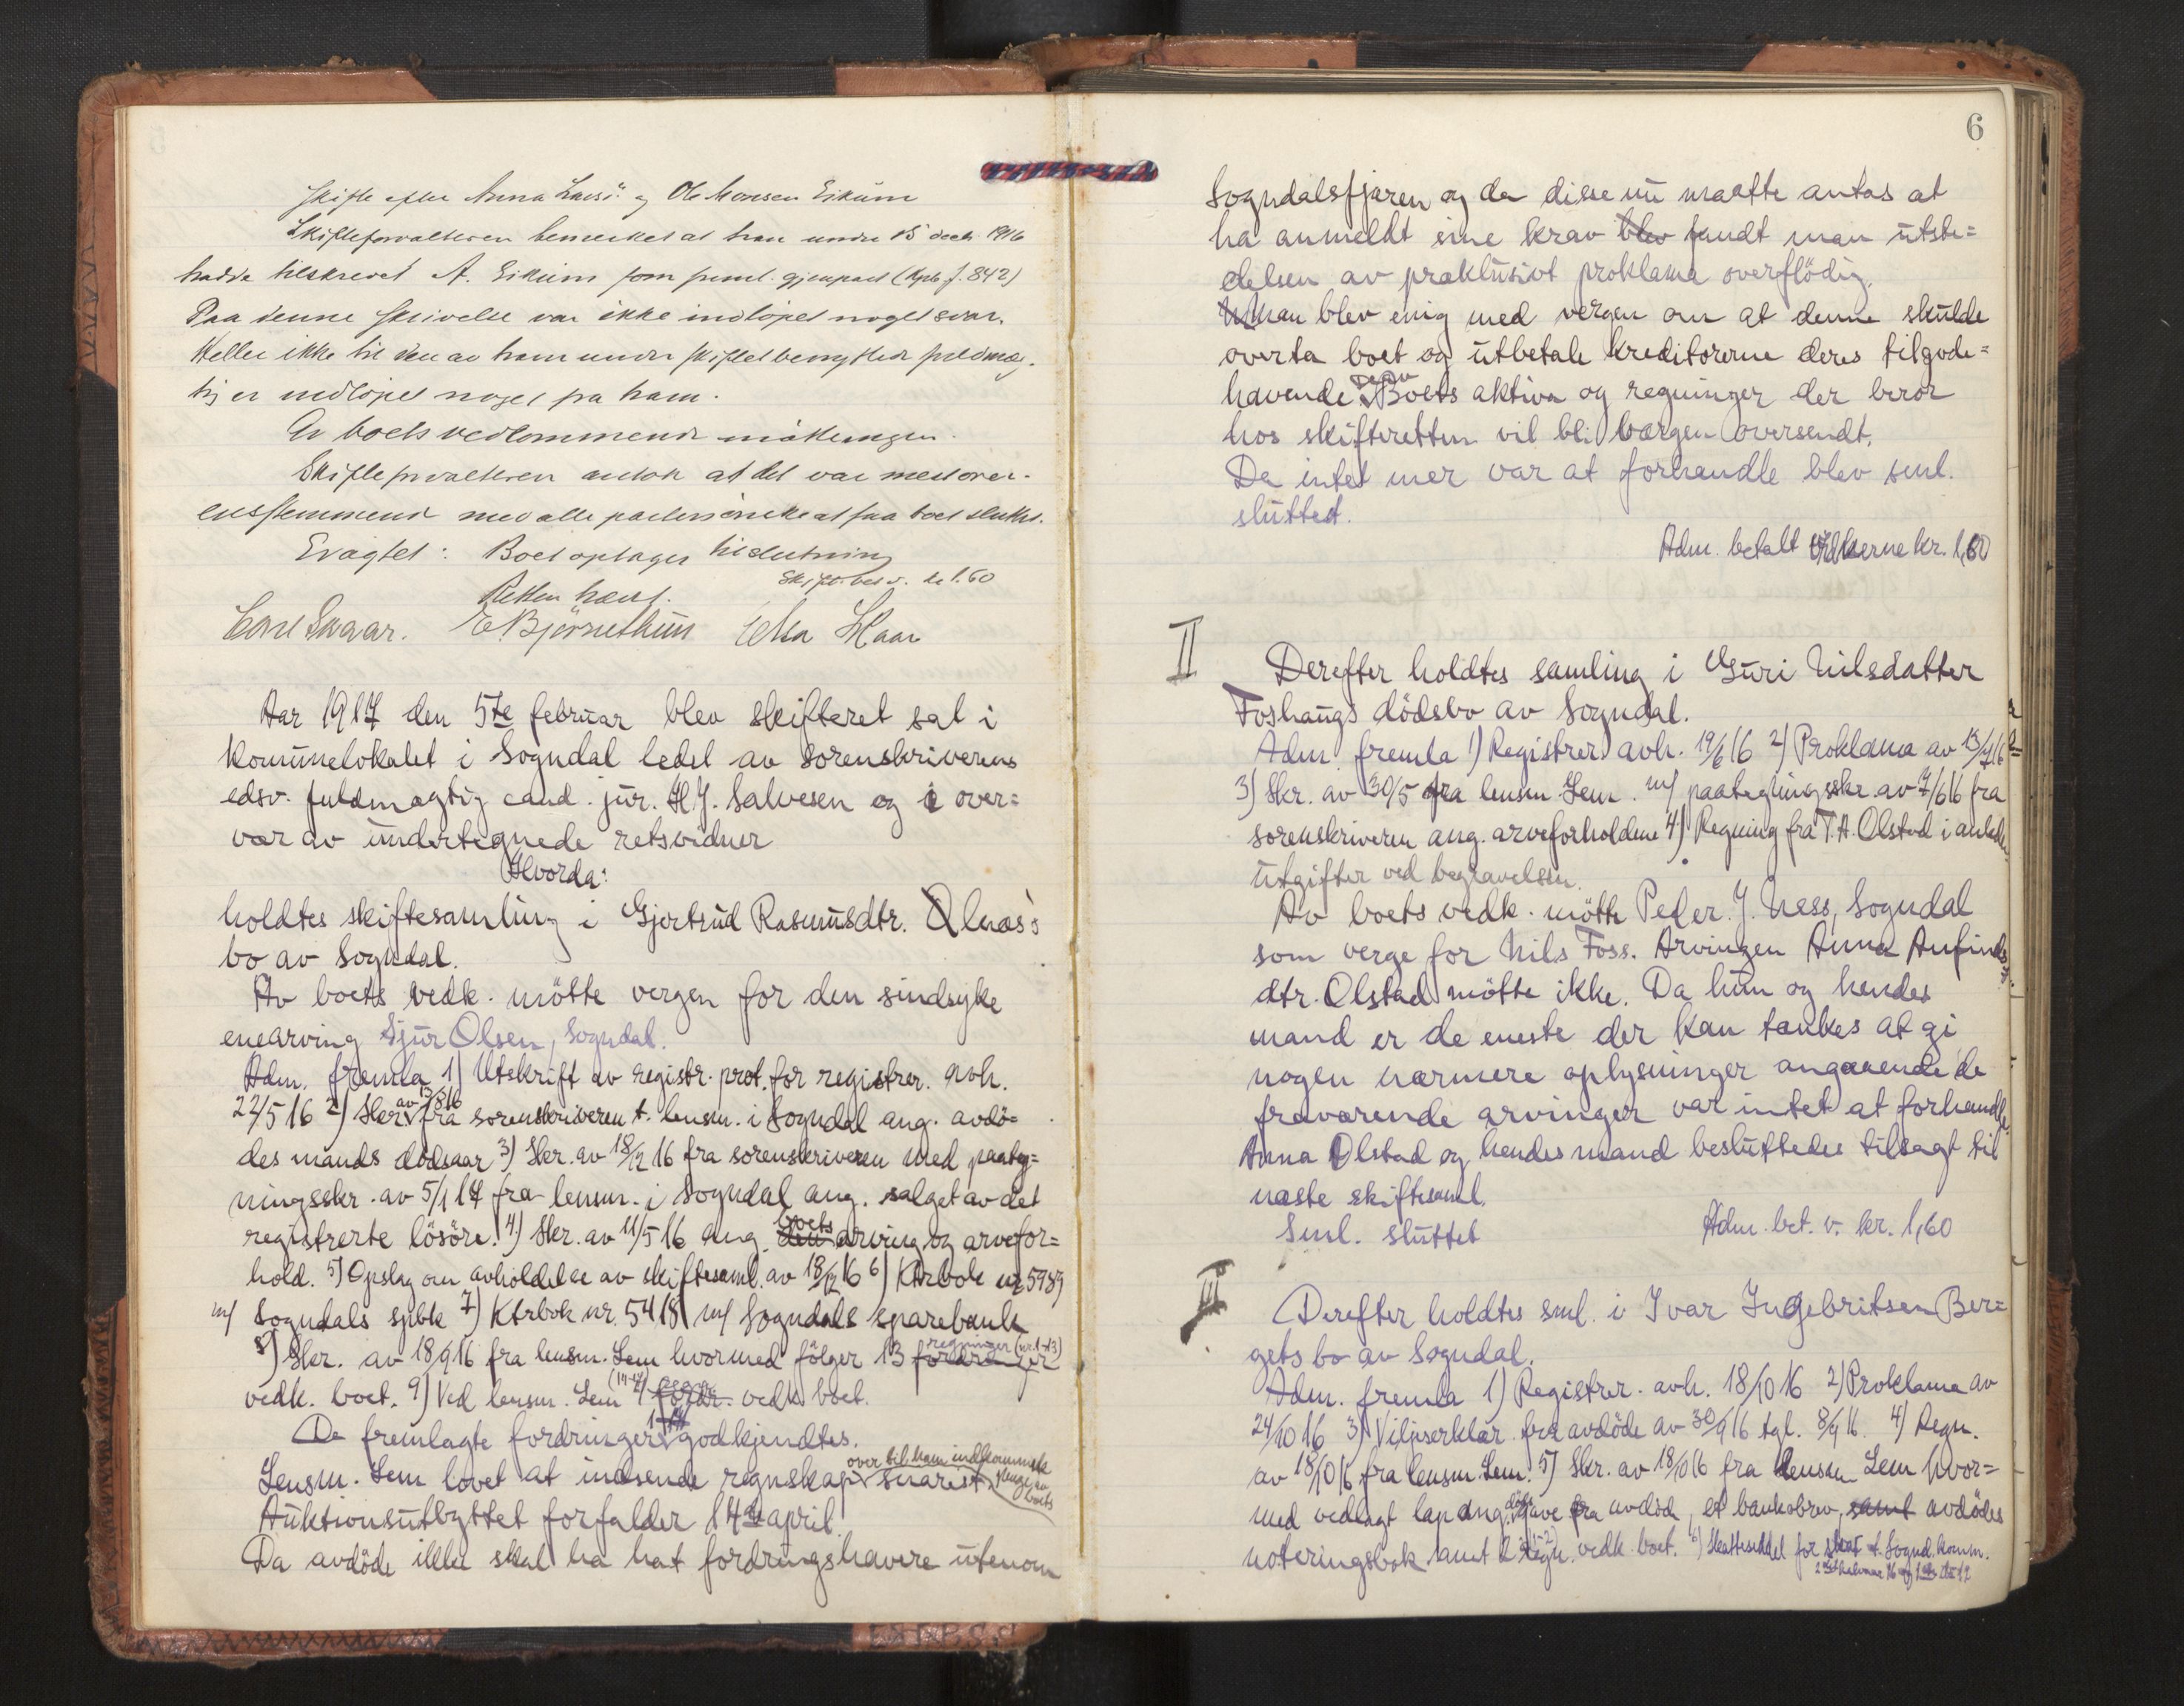 Skifte efter Anna Larsd. og Ole Monsen Eikum
Skifteforvalteren bemerket at han under 15 decbr 1916
hadde tilskrevet A. Eikum som fuml. gjenpart (Kpb f. 842)
Paa denne skrivelse var ikke indløpet noget svar.
Heller ikke til den av ham under skiftet benyttede fuldmæg-
tig er indløpet noget fra ham.
Av boets vedkommende møtte ingen.
Skifteforvalteren antok at det var mest over-
ensstemmende med alle parters ønske at faa boet sluttet.
Eragtet: Boet optages til slutning
Skifto. bet. v. kr 1.60
Retten hævet.
Carl Svaar. E Bjørnethun Elsa Skaar
Aar 1917 den 5te februar blev skifteret sat i
Kommunelokalet i Sogndal ledet av sorenskriverens
edsv. fuldmægtig cand. jur. H. J. Salvesen og i over=
vær av undertegnede retsvidner
Hvorda:
holdtes skiftesamling i Gjertrud Rasmusdtr. Alnæs's
bo av Sogndal.
Av boets vedk. møtte vergen for den sindsyke
enearving Sjur Olsen, Sogndal.
Adm. fremla 1) Utskrift av registr. prot. for registrer. avh.
22/5 16 2) Skr. av 15/5 16 fra sorenskriveren t. lensm. i Sogndal ang. avdø=
des mands dødsaar 3) Skr. av 18/12 16 fra sorenskriveren med paateg=
ningsskr. av 5/1 17 fra lensm. i Sogndal ang. salget av det
registrerte løsøre. 4) Skr. av 11/5 16 ang. boets arving og arvefor=
hold. 5) Opslag om avholdelse av skiftesaml. av 18/12 16 6) Ktrbok nr 5989
m/ Sogndals spbk 7) Ktrbok nr. 5418 m/ Sogndals sparebank
8) Skr. av 18/9 16 fra lensm. Lem hvormed følger 13 fordringer regninger (nr. 1-13)
vedk. boet. 9) Ved lensm. Lem 4 (14-17) fordr. regn. vedk. boet.
De fremlagte fordringer 1-17 godkjendtes.
Lensm. Lem lovet at indsende regnskap over til ham indkommende penge av boets snarest
Auktionsutbyttet forfalder 14de april.
Da avdøde ikke skal ha hat fordringshavere utenom
6
Sogndalsfjæren og da disse nu maatte antas at
ha anmeldt sine krav blev fandt man utste=
delsen av præklusivt proklama overflødig.
Man blev enig med vergen om at denne skulde
overta boet og utbetale kreditorerne deres tilgode=
havende. Boets aktiva og regninger der beror
hos skifteretten vil bli værgen oversendt.
Da intet mer var at forhandle blev sml.
sluttet.
Adm. betalt vidnerne kr. 1,60
II
Derefter holdtes samling i Guri Nilsdatter
Foshaugs dødsbo av Sogndal.
Adm. fremla 1) Registrer. avh. 19/6 16 2) Proklama av 15/7 16
3) Skr. av 30/5 fra lensm. Lem. m/ paategningsskr. av 7/6 16 fra
sorenskriveren ang. arveforholdene 4) Regning fra T. A. Olstad i anledn.
utgifter ved begravelsen.
Av boets vedk. møtte Peder J. Ness, Sogndal
som verge for Nils Foss. Arvingen Anna Anfinds-
dtr. Olstad møtte ikke. Da hun og hendes
mand er de eneste der kan tænkes at gi
nogen nærmere oplysninger angaaende de
fraværende arvinger var intet at forhandle.
Anna Olstad og hendes mand besluttedes tilsagt til
næste skiftesaml.
Sml. sluttet Adm. bet. v. kr. 1,60
III
Derefter holdtes sml. i Ivar Ingebritsen Ber=
gets bo av Sogndal.
Adm. fremla 1) Registrer. avh. 18/10 16 2) Proklama av
24/10 16 3) Viljeserklær. fra avdøde av 30/9 16 tgl. 8/9 16. 4) Regn.
av 18/10 16 fra lensm. Lem. 5) Skr. av 18/10 16 fra lensm Lem hvor=
med vedlagt lap ang. døds gave fra avdøde, et bankobrev, samt avdødes
noteringsbok samt 2 regn. (1-2) vedk. boet. 6) Skatteseddel for skat t. Sognd. komm.
2det halvaar 16 og 1ste do 17